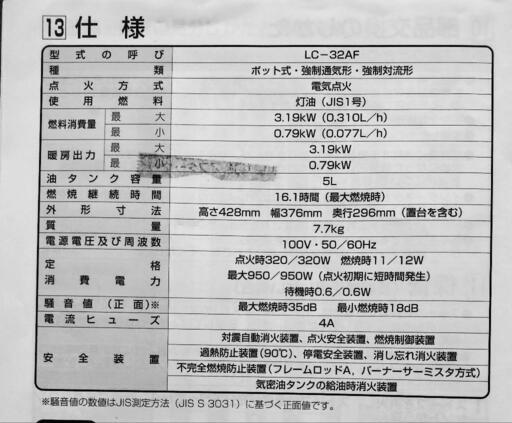 13 仕様
型式の呼び LC-32AF
種類 ポット式・強制通気形・強制対流形
点火方式 電気点火
使用燃料 灯油(JIS1号)
燃料消費量 最大 3.19kW(0.310L/h)
最小 0.79kW(0.077L/h)
暖房出力 最大 3.19kW
最小 0.79kW
油タンク容量 5L
燃焼継続時間 16.1時間(最大燃焼時)
外形寸法 高さ428mm 幅376mm 奥行296mm(置台を含む)
質量 7.7kg
電源電圧及び周波数 100V・50/60Hz
定格消費電力 点火時320/320W 燃焼時11/12W
最大950/950W(点火初期に短時間発生)
待機時0.6/0.6W
騒音値(正面)※ 最大燃焼時35dB 最小燃焼時18dB
電流ヒューズ 4A
安全装置 対震自動消火装置、点火安全装置、燃焼制御装置
過熱防止装置(90℃)、停電安全装置、消し忘れ消火装置
不完全燃焼防止装置(フレームロッドA、バーナーサーミスタ方式)
気密油タンクの給油時消火装置
※騒音値の数値はJIS測定方法(JIS S 3031)に基づく正面値です。